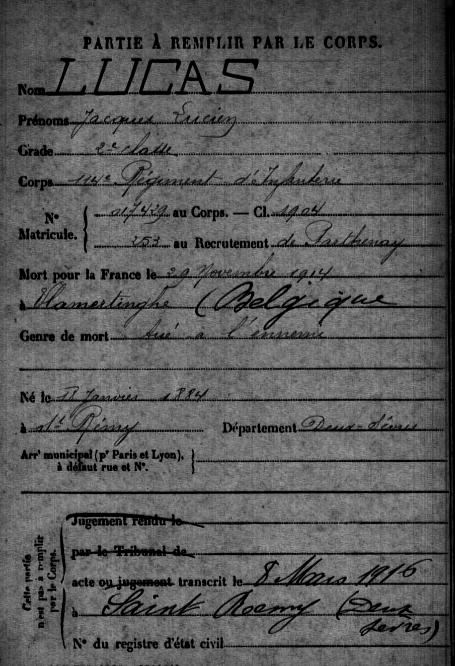 PARTIE À REMPLIR PAR LE CORPS.
Nom LUCAS
Prénoms Jacques Lucien
Grade 2e classe
Corps 114e Régiment d'Infanterie
N° Matricule. { 017429 au Corps. — Cl. 1904
253 au Recrutement de Parthenay
Mort pour la France le 29 Novembre 1914
à Vlamertinghe (Belgique
Genre de mort tué à l'ennemi
Né le Janvier 1884
à St Rémy Département Deux-Sèvres
Arrt municipal (pr Paris et Lyon), à défaut rue et N°.
Cette partie n'est pas à remplir par le Corps.
Jugement rendu le
par le Tribunal de
acte ou jugement transcrit le 8 Mars 1916
à Saint Remy (Deux Sevres)
N° du registre d'état civil